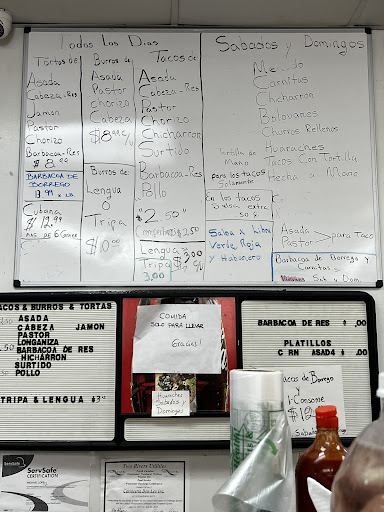 Todos Los Dias
Tortas de
Asada
Cabeza-Res
Jamon
Pastor
Chorizo
Barbacoa-Res
$8.00
BARBACOA DE
BORREGO
Cubana
$12.99
Burros de
Asada
Pastor
chorizo
Cabeza
$8.99 c/u
Burros de
Lengua
y
Tripa
$10.00
Tacos de
Asada
Cabeza-Res
Pastor
Chorizo
Chicharron
Surtido
Barbacoa-Res
Pollo
$2.50
$2.50
Lengua y
Tripa
$3.00
c/u
3.00
Sabados y Domingos
Carnitas
Chicharron
Bolovanes
Chorros Rellenos
Huaraches
Tacos Con Tortilla
Hecha a Mano
tortilla de
Mano
para los tacos
Solamente
En los tacos
extra
50 ¢
Salsa x Libra
Verde, Roja
y Habanero
Asada
Pastor
para Taco
Barbacoa de Borrego y
Carnitas
Sab y Dom
TACOS & BURROS & TORTAS
ASADA
CABEZA JAMON
PASTOR
LONGANIZA
BARBACOA DE RES
HICHARRON
SURTIDO
POLLO
TRIPA & LENGUA
COMIDA
SOLO PARA LLEVAR
Gracias!
Huaraches
Sabados y
Domingos
BARBACOA DE RES $ .00
PLATILLOS
C RN ASAD4 $ .00
acos de Borrego
y
1-Consome
$12
ServSafe
ServSafe
CERTIFICATION
Two Rivers Utilities